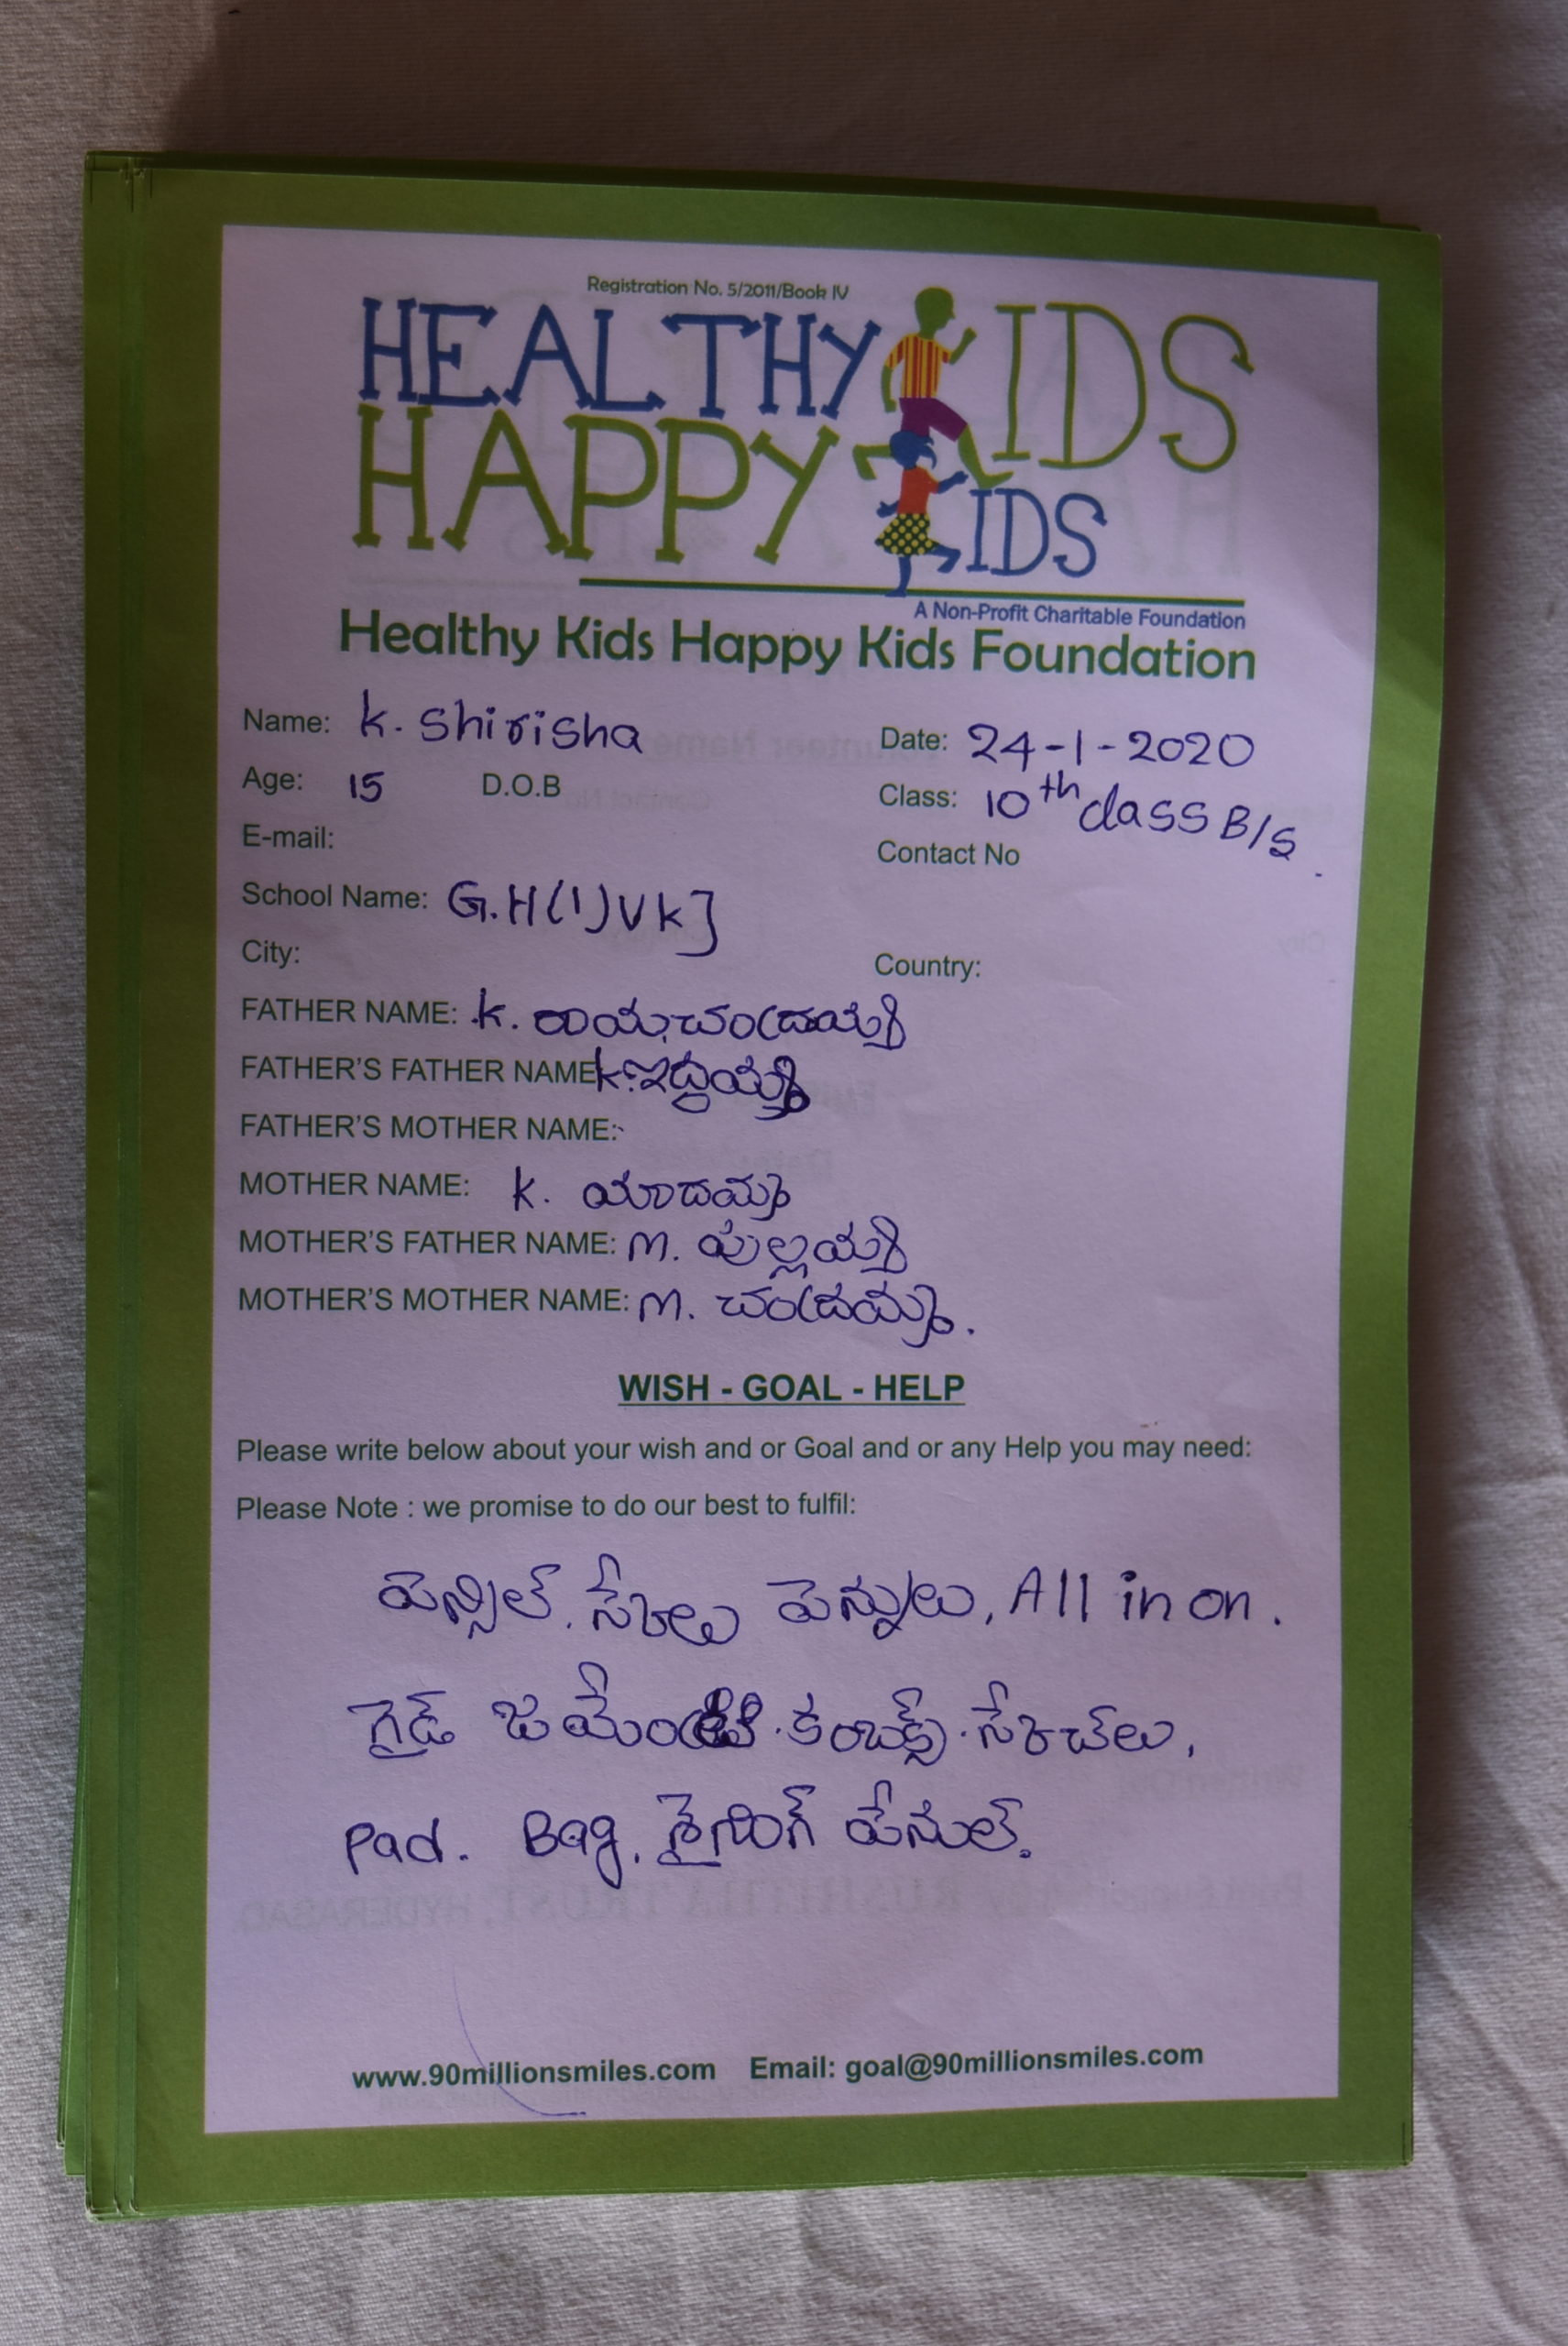 Registration No. 5/2011/Book IV
HEALTHY KIDS
HAPPY KIDS
A Non-Profit Charitable Foundation
Healthy Kids Happy Kids Foundation
Name: K. Shirisha Date: 24-1-2020
Age: 15 D.O.B Class: 10th class B/S
E-mail: Contact No
School Name: G.H(1)VK]
City: Country:
FATHER NAME: K. రాయచంద్రయ్య
FATHER'S FATHER NAME K.
FATHER'S MOTHER NAME:
MOTHER NAME: K. యాదమ్మ
MOTHER'S FATHER NAME: M. పుల్లయ్య
MOTHER'S MOTHER NAME: M. చంద్రమ్మ.
WISH - GOAL - HELP
Please write below about your wish and or Goal and or any Help you may need:
Please Note : we promise to do our best to fulfil:
పెన్సిల్. స్కేలు పెన్నులు, All in on.
గైడ్ కంబాక్స్. స్కేచ్‌లు,
Pad. Bag.
www.90millionsmiles.com Email: goal@90millionsmiles.com